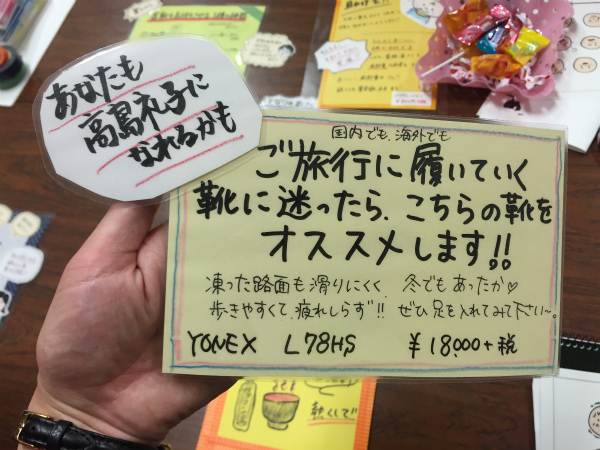 あなたも
高島礼子に
なれるかも
国内でも、海外でも
ご旅行に履いていく
靴に迷ったら、こちらの靴を
オススメします!!
凍った路面も滑りにくく 冬でもあったか♡
歩きやすくて、疲れしらず!! ぜひ足を入れてみて下さい〜。
YONEX L78HS ¥18,000+税
熱くして